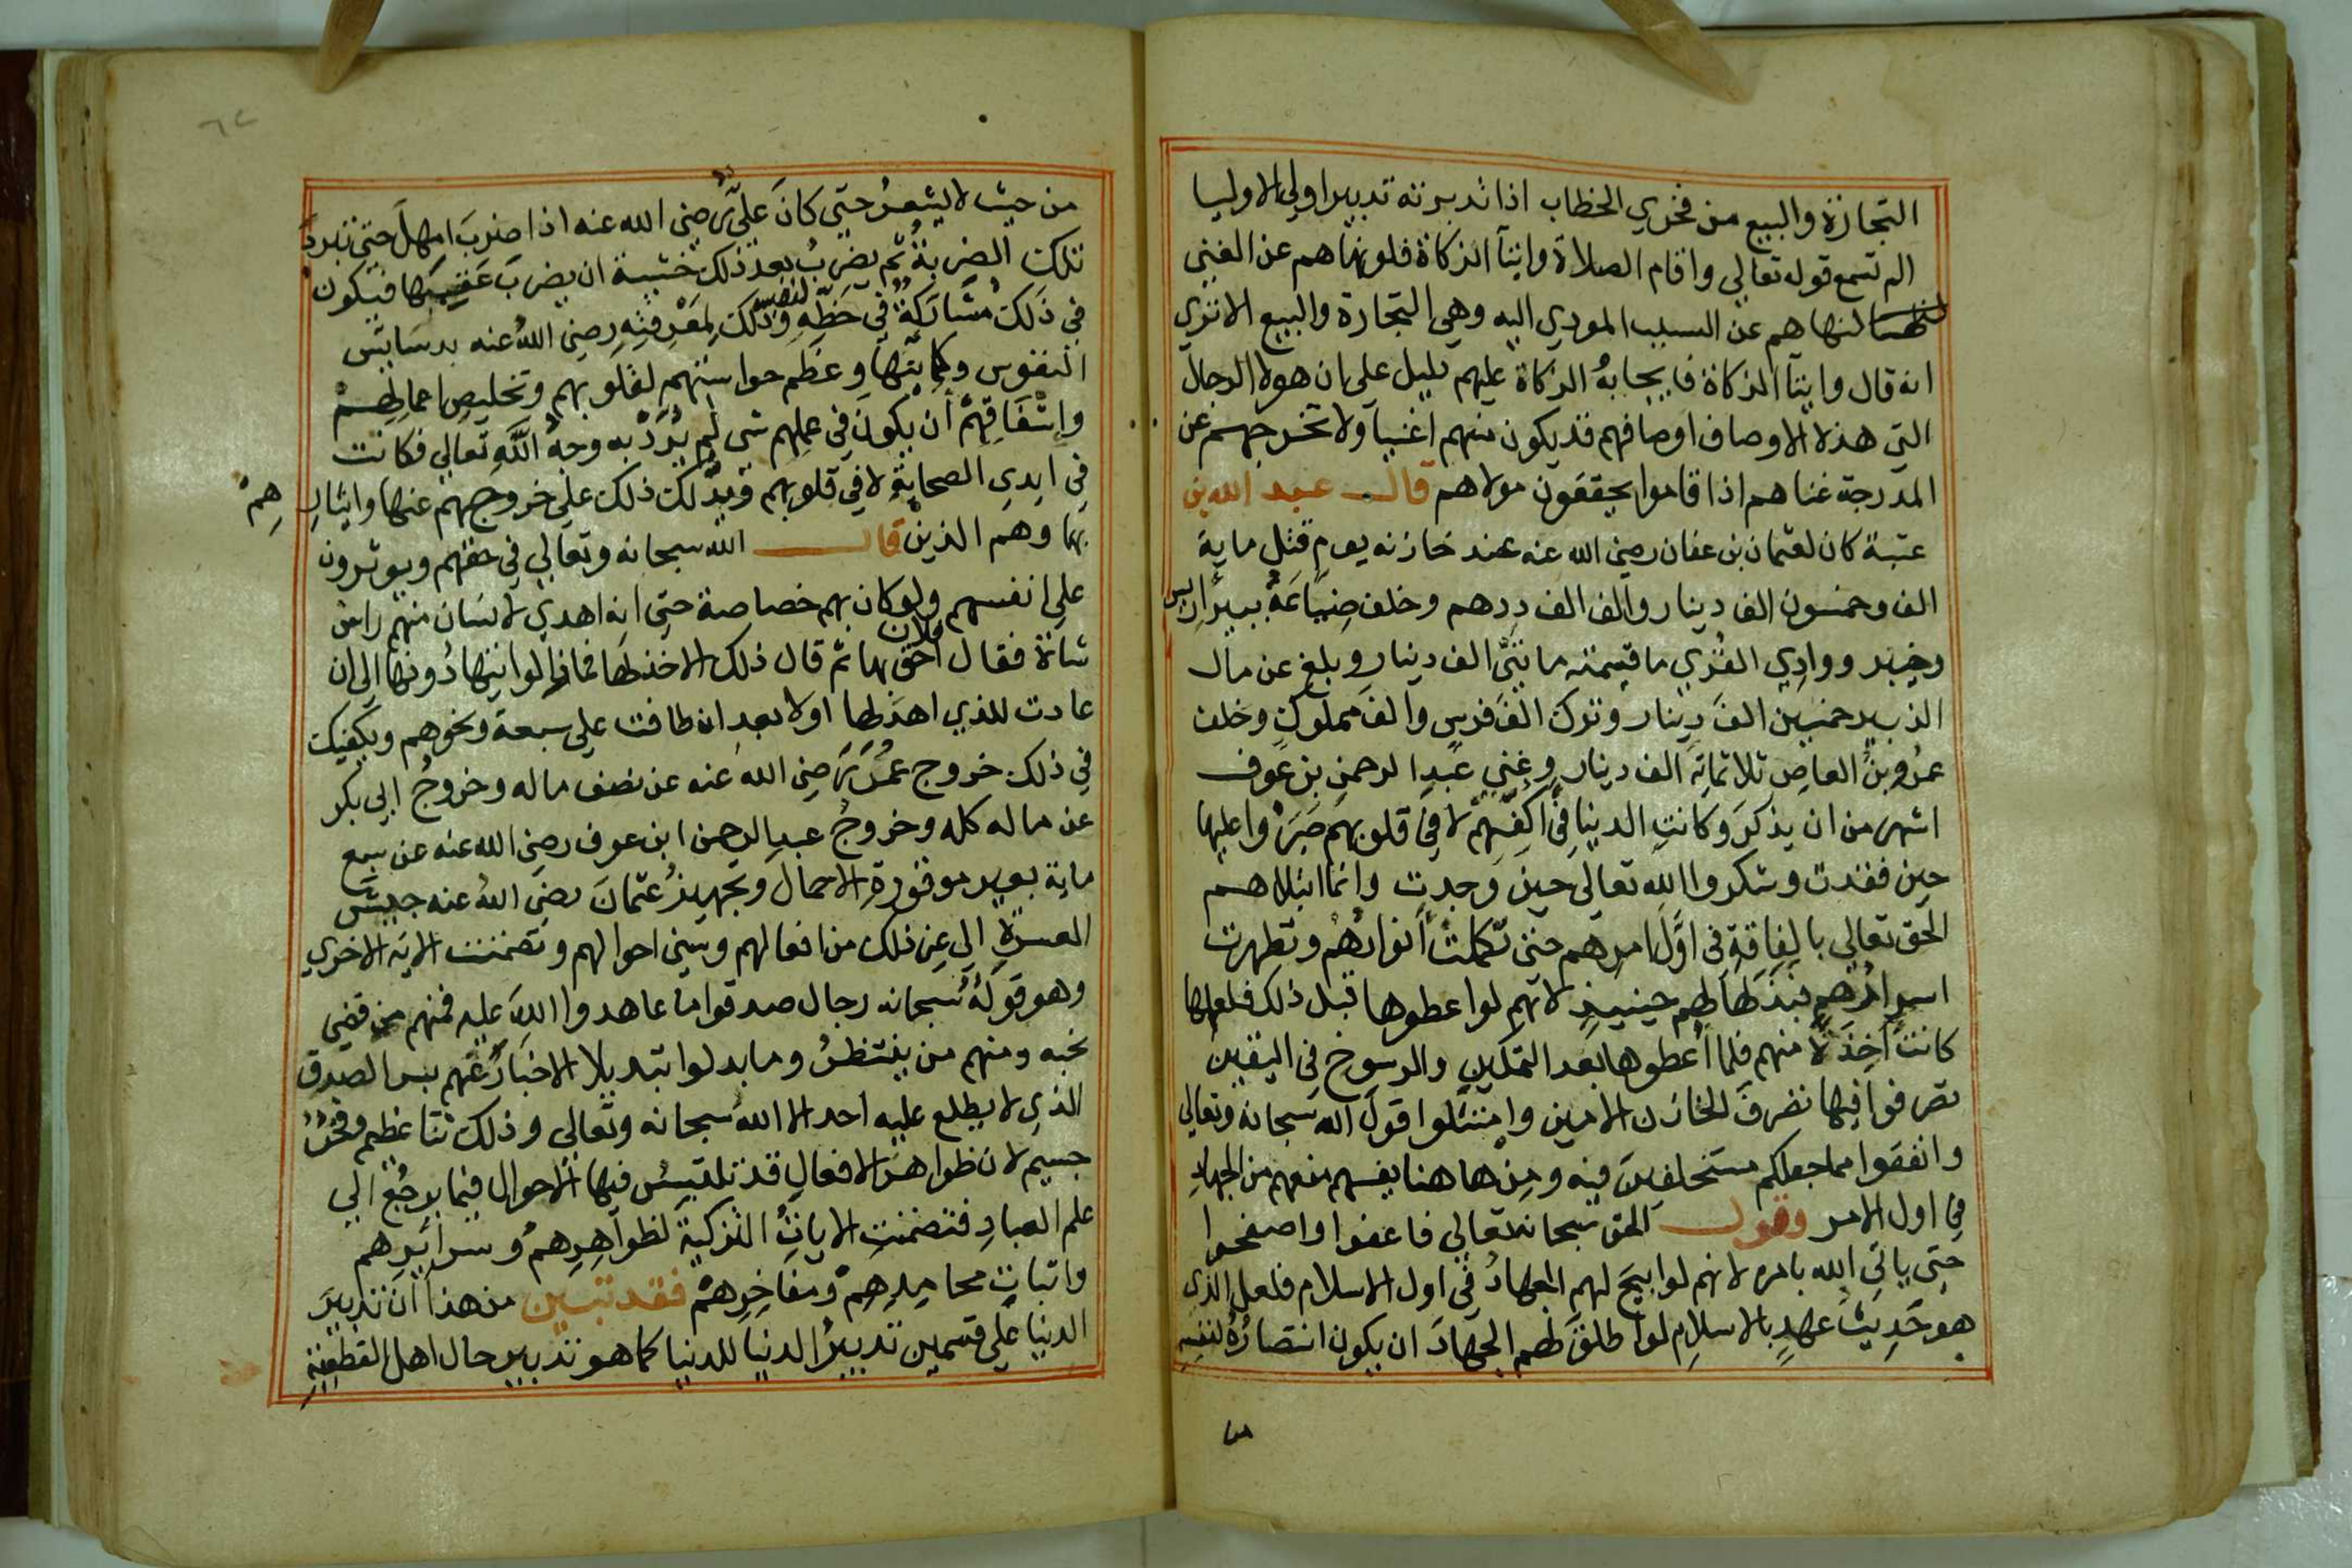 التجارة والبيع من فحوي الخطاب اذا تدبرته تدبير اولي الاوليا
الم تسمع قوله تعالي واقام الصلاة وايتآ الزكاة فلو نهاهم عن الغني
لنهاهم عن السبب المودي اليه وهي التجارة والبيع الا تري
انه قال وايتآ الزكاة فايجابه الزكاة عليهم دليل علي ان هولا الرجال
التي هذه الاوصاف اوصافهم قد يكون منهم اغنيآ ولا تخرجهم عن
المدرجة غناهم اذا قاموا بحقوق مولاهم قال عبد الله بن
عتبة كان لعثمان بن عفان رضي الله عنه عند خازنه يوم قتل ماية
الف وخمسون الف دينار والف الف درهم وخلف ضِيَاعَةً ببير اريس
وخيبر ووادي القُري ما قيمته مايتيّ الف دينار وبلغ عن مال
الزبير خمسين الفَ دينار وترك الفَ فرس والفَ مملوكٍ وخلف
عمرُو بنُ العاصِ ثلاثماية الف دينار وغِني عبدِ الرحمنِ بن عوف
اشهر من ان يذكرَ وكانتِ الدنيا في اكفّهم لا في قلوبهم صَبَرُوا عليها
حين فقدت وشكروا الله تعالى حين وجدت وانما ابتلاهم
الحق تعالي بالفاقةِ في اوَّل امرهم حتي تكملتْ انوارهُم وتطهرت
اسرارُهم فبذلها لهم حينيذٍ لانهم لو اعطوها قبل ذلك فلعلها
كانت اخِذَةً منهم فلما اُعطوها بعد التمكين والرسوخ في اليقين
تصرفوا فيها تصرفَ الخازن الامين وامتثلوا قول الله سبحانه وتعالي
وانفقوا مما جعلكم مستخلفين فيه ومن هاهنا يفهم منعهم من الجهاد
في اول الامر وقول الحق سبحانه وتعالي فاعفوا واصفحوا
حتي ياتي الله بامره لانهم لو ابيحَ لهم الجهادُ في اول الاسلام فلعل الذي
هو حَدِيثُ عهدٍ بالاسلام لو اطلقَ لهم الجهادَ ان يكون انتصارُهُ لنفسِهِ
من حيث لا يشعرُ حتي كانَ عليٌّ رضي الله عنه اذا ضربَ امهلَ حتي تبردَ
تلك الضربةُ ثم يضربُ بعد ذلك خشية ان يضربَ عقيبها فيكون
في ذلك مُشَارَكةٌ لنفس في حَظِّهِ وذلك لِمَعْرِفتِهِ رضي الله عنه بدسايس
النفوس وكماينها وعظم حراستهم لقلوبهم وتخليصِ اعمالِهِمْ
واشفاقِهمْ أن يكونَ في عملِهم شي لم يُرَدْ به وجهُ اللهِ تعالي فكانت
في ايدي الصحابةِ لا في قلوبهم ويدلك ذلك علي خروجهم عنها وايثارِهِمْ
بها وهم الذين قال الله سبحانه وتعالي في حقهم ويوثرون
علي انفسهم ولو كان بهم خصاصة حتي انه اهدي لانسان منهم راسُ
شاة فقال فلان احق بها ثم قال ذلك الاخذ لها فما زالوا يتهادُونها الي ان
عادت للذي اهدَاها اولا بعد ان طافت علي سبعة ونحوهم ويكفيك
في ذلك خروج عُمَرَ رَضِي الله عنه عن نصف ماله وخروجُ ابي بكر
عن ماله كله وخروجُ عبد الرحمن ابن عوف رضي الله عنه عن سبع
ماية بعير موقورة الاحمال وتجهيزُ عثمانَ رضي الله عنه جيشَ
العسرةِ الي غير ذلك من افعالهم وسني احوالهم وتضمنت الاية الاخري
وهو قولهُ سبحانه رجال صدقوا ما عاهدوا اللهَ عليه فمنهم من قضي
نحبه ومنهم من ينتظرُ وما بدلوا تبديلا الاخبارُ عنهم بسر الصدق
الذي لا يطلع عليه احد الا الله سبحانه وتعالي وذلك ثنا عظيم وفخرٌ
جسيم لان ظواهرَ الافعال قد تلتبسُ فيها الاحوال فيما يرجع الي
علم العبادِ فتضمنتِ الاياتُ التزكيةَ لظواهِرِهمْ وسرايرهم
واثبات محامِدِهِمْ ومفاخِرِهمْ فقد تبين من هذا انّ تدبيرَ
الدنيا علي قسمين تدبيرُ الدنيا للدنيا كما هو تدبير حال اهل القطعيةِ